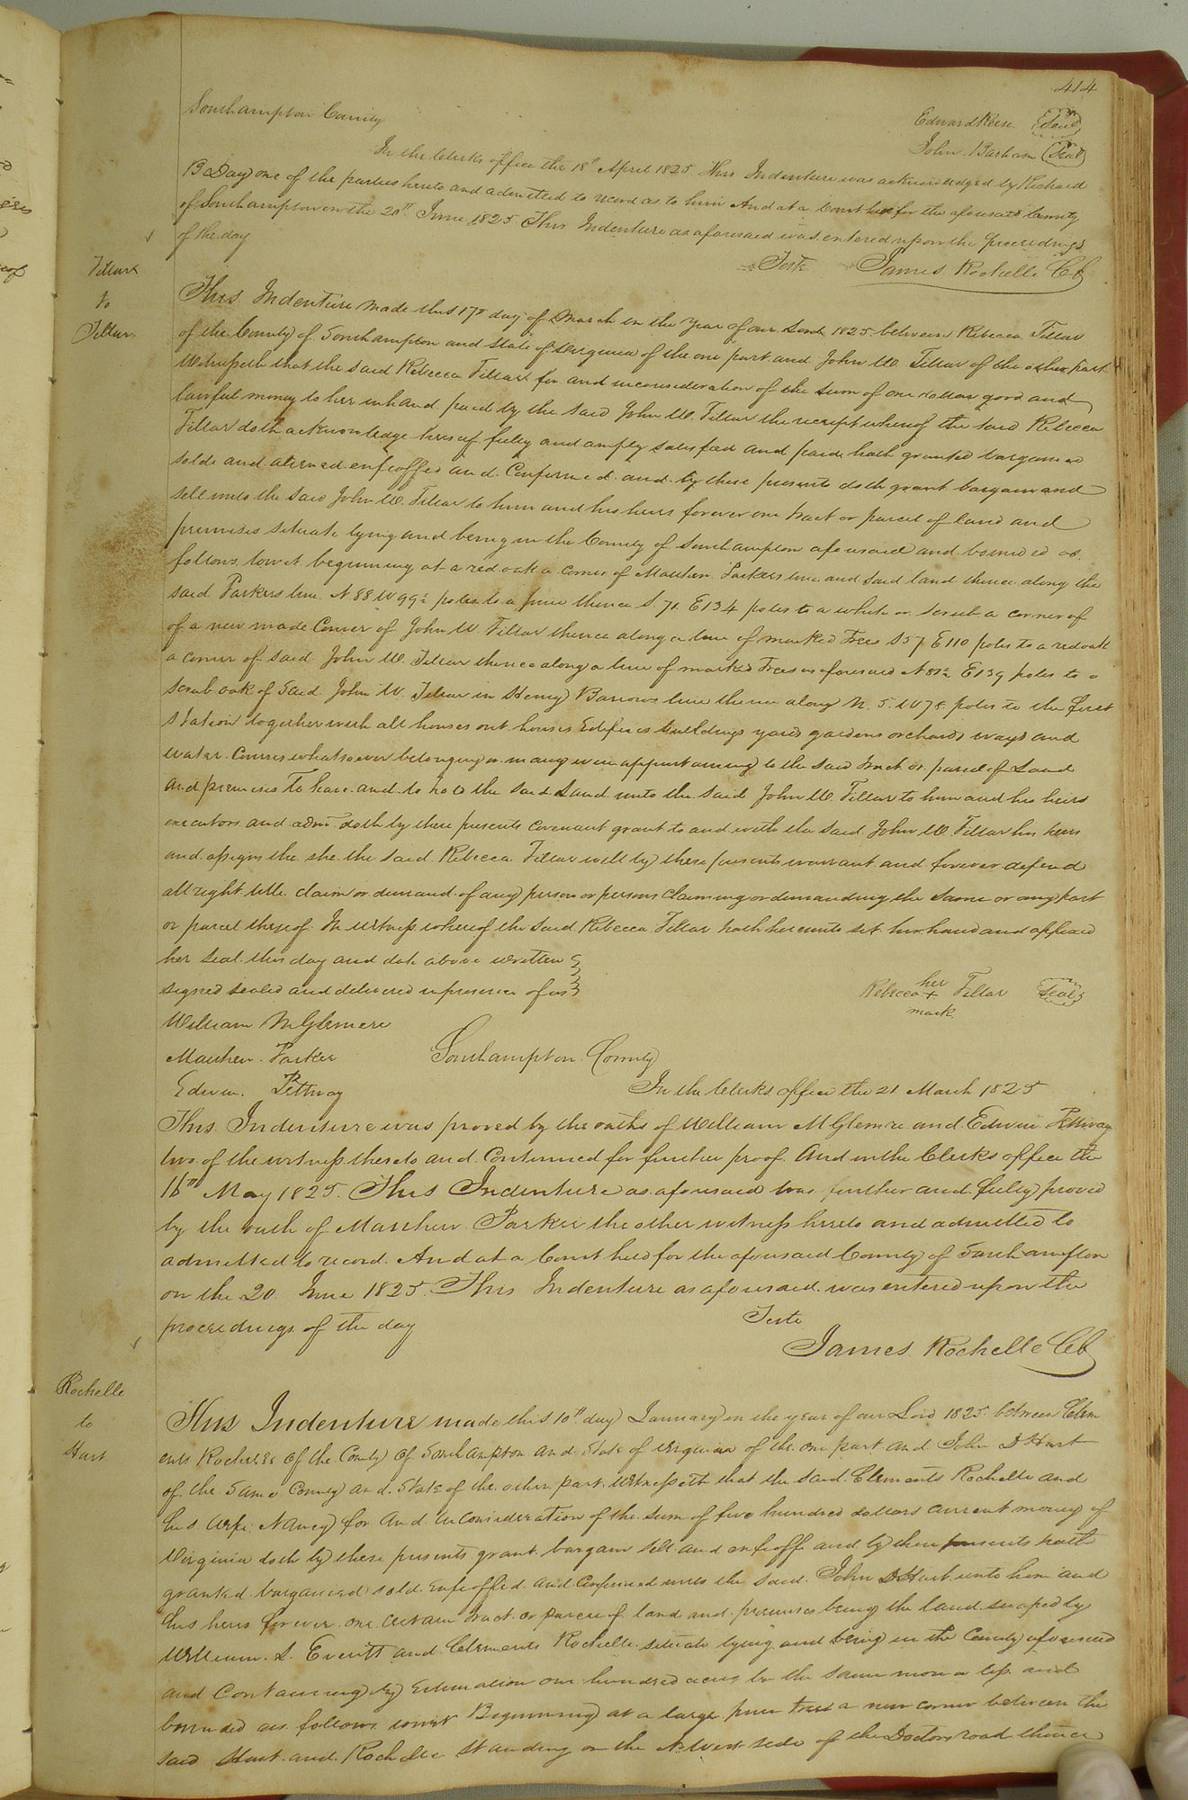 414
Southampton County
Edward Reese (Seal)
John Barham (Seal)
In the Clerks office the 18th April 1825 This Indenture was acknowledged by Richard
B Day one of the parties hereto and admitted to record as to him And at a Court held for the aforesaid County
of Southampton on the 20th June 1825 This Indenture as aforesaid was entered upon the proceedings
of the day
Teste James Rochelle CC
Tillar
to
Tillar
This Indenture made this 17th day of March in the year of our Lord 1825 between Rebecca Tillar
of the County of Southampton and State of Virginia of the one part and John W. Tillar of the other part
Witnesseth that the said Rebecca Tillar for and in consideration of the sum of one dollar good and
lawful money to her in hand paid by the said John W. Tillar the receipt whereof the said Rebecca
Tillar doth acknowledge herself fully and amply satisfied and paid hath granted bargained
solds and aliened enfeoffed and Confirmed and by these presents doth grant bargain and
sell unto the said John W. Tillar to him and his heirs forever one tract or parcel of land and
premises situate lying and being in the County of Southampton aforesaid and bounded as
follows towit beginning at a red oak a corner of Mathew Parkers line and said land thence along the
said Parkers line N 88 W 99½ poles to a pine thence S 71 E 134 poles to a white or scrub a corner of
of a new made Corner of John W Tillar thence along a line of marked Trees S 57 E 110 poles to a redoak
a corner of said John W. Tillar thence along a line of marked Trees as aforesaid N 81½ E 139 poles to a
scrub oak of said John W. Tillar in Henry Barrows line thence along N. 5. W 78 poles to the first
station together with all houses out houses Edifices buildings yards gardens orchards ways and
water Courses whatsoever belonging or in any wise appertaining to the said tract or parcel of Land
and premises To have and to hold the said Land unto the said John W. Tillar to him and his heirs
executors and adm doth by these presents covenant grant to and with the said John W. Tillar his heirs
and assigns the she the said Rebecca Tillar will by these presents warrant and forever defend
all right title claim or demand of any person or persons Claiming or demanding the same or any part
or parcel thereof In witness whereof the said Rebecca Tillar hath hereunto set her hand and affixed
her seal this day and date above written
signed sealed and delivered in presence of us
Rebecca her + mark Tillar (Seal)
William MGlemre
Mathew Parker
Edwin Pettway
Southampton County
In the Clerks office the 21 March 1825
This Indenture was proved by the oaths of William MGlemre and Edwin Pettway
two of the witness thereto and Continued for further proof And in the Clerks office the
16th May 1825. This Indenture as aforesaid was further and fully proved
by the oath of Mathew Parker the other witness hereto and admitted to
admitted to record. And at a Court held for the aforesaid County of Southampton
on the 20 June 1825. This Indenture as aforesaid was entered upon the
proceedings of the day
Teste
James Rochelle CC
Rochelle
to
Hart
This Indenture made this 10th day January in the year of our Lord 1825 between Clem
ents Rochelle of the County of Southampton and State of Virginia of the one part and John D Hart
of the same County and State of the other part Witnesseth that the said Clements Rochelle and
his wife Nancy for and in consideration of the sum of five hundred dollars current money of
Virginia doth by these presents grant bargain sell and enfeoff and by these presents hath
granted bargained sold enfeoffed and Confirmed unto the said John D Hart unto him and
his heirs forever one certain tract or parcel of land and premises being the land swaped by
William S. Everitt and Clements Rochelle situate lying and being in the County aforesaid
and Containing by Estimation one hundred acres be the same more or less and
bounded as follows towit Beginning at a large pine tree a new corner between the
said Hart and Rochelle Standing on the N. West side of the Doctors road thence